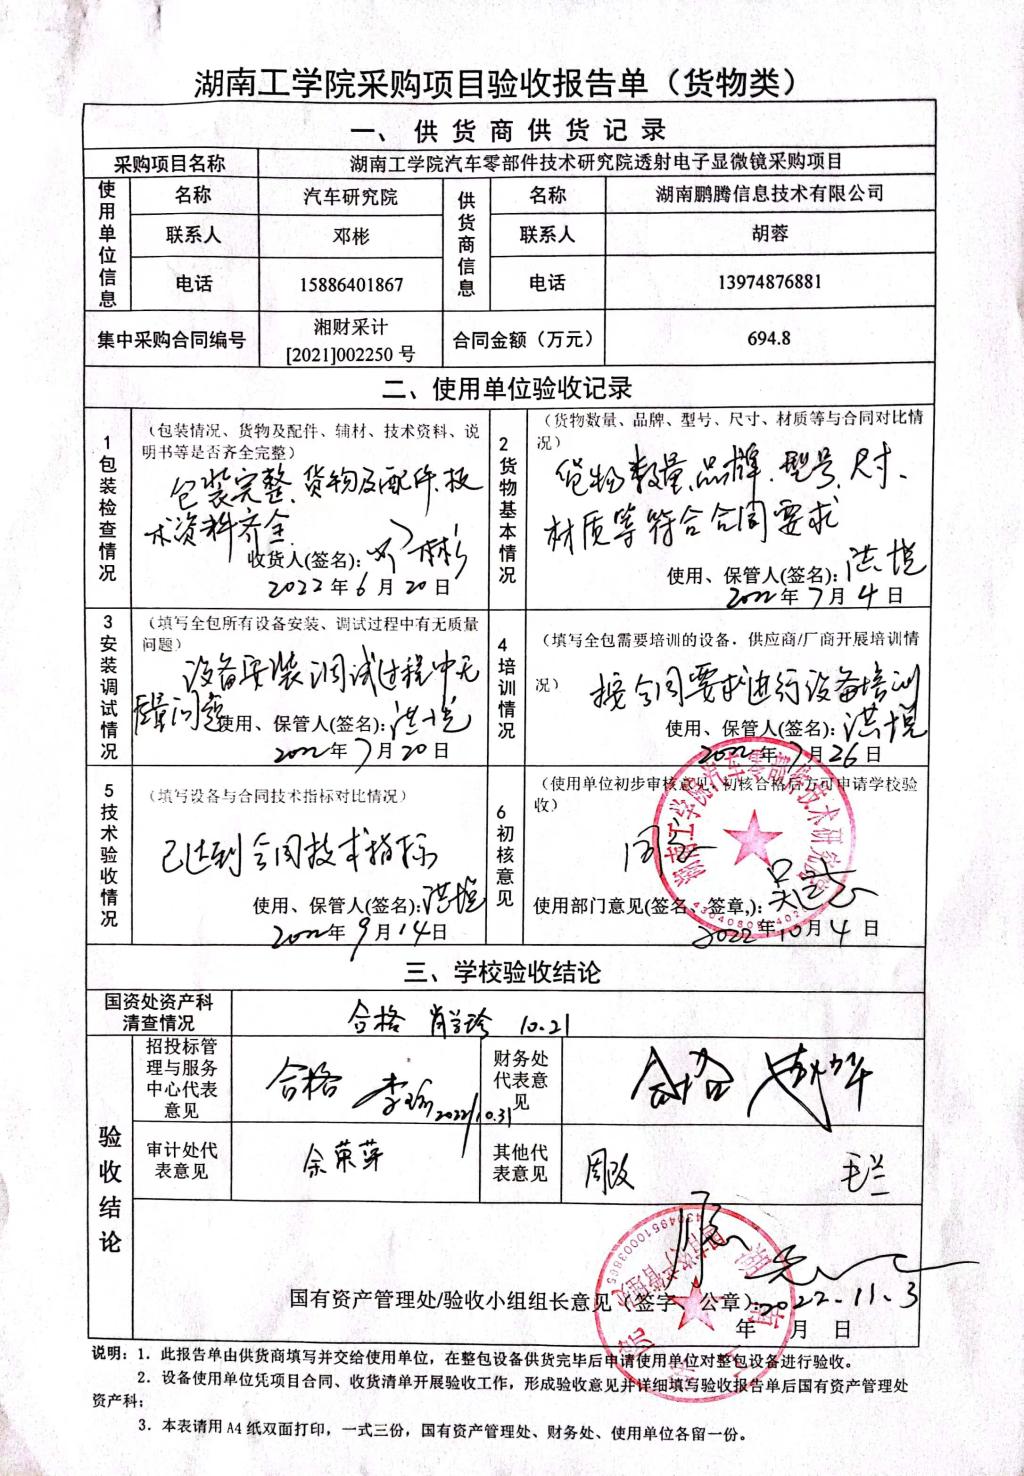 湖南工学院采购项目验收报告单（货物类）
一、供货商供货记录
采购项目名称 湖南工学院汽车零部件技术研究院透射电子显微镜采购项目
使用单位信息
名称 汽车研究院
联系人 邓彬
电话 15886401867
供货商信息
名称 湖南鹏腾信息技术有限公司
联系人 胡蓉
电话 13974876881
集中采购合同编号 湘财采计
[2021]002250 号
合同金额（万元） 694.8
二、使用单位验收记录
1包装检查情况
（包装情况、货物及配件、辅材、技术资料、说
明书等是否齐全完整）
包装完整、货物及配件、技
术资料齐全
收货人(签名): 邓彬
2022年6月20日
2货物基本情况
（货物数量、品牌、型号、尺寸、材质等与合同对比情
况）
货物数量、品牌、型号、尺寸、
材质等符合合同要求
使用、保管人(签名):
2022年7月4日
3安装调试情况
（填写全包所有设备安装、调试过程中有无质量
问题）
设备安装调试过程中无
质量问题
使用、保管人(签名):
2022年7月20日
4培训情况
（填写全包需要培训的设备，供应商/厂商开展培训情
况）
按合同要求进行设备培训
使用、保管人(签名):
2022年7月26日
5技术验收情况
（填写设备与合同技术指标对比情况）
已达到合同技术指标
使用、保管人(签名):
2022年9月14日
6初核意见
（使用单位初步审核意见，初核合格后方可申请学校验
收）
同意
使用部门意见(签名、签章,):
2022年10月4日
湖南工学院汽车零部件技术研究院
三、学校验收结论
国资处资产科
清查情况
合格 10.21
验收结论
招投标管
理与服务
中心代表
意见
合格 李瑜 2022/10.31
财务处
代表意
见
合格
审计处代
表意见
余荣萍
其他代
表意见
周政 毛兰
国有资产管理处/验收小组组长意见（签字、公章）:
2022.11.3
年 月 日
说明：1．此报告单由供货商填写并交给使用单位，在整包设备供货完毕后申请使用单位对整包设备进行验收。
2．设备使用单位凭项目合同、收货清单开展验收工作，形成验收意见并详细填写验收报告单后国有资产管理处
资产科；
3．本表请用 A4 纸双面打印，一式三份，国有资产管理处、财务处、使用单位各留一份。